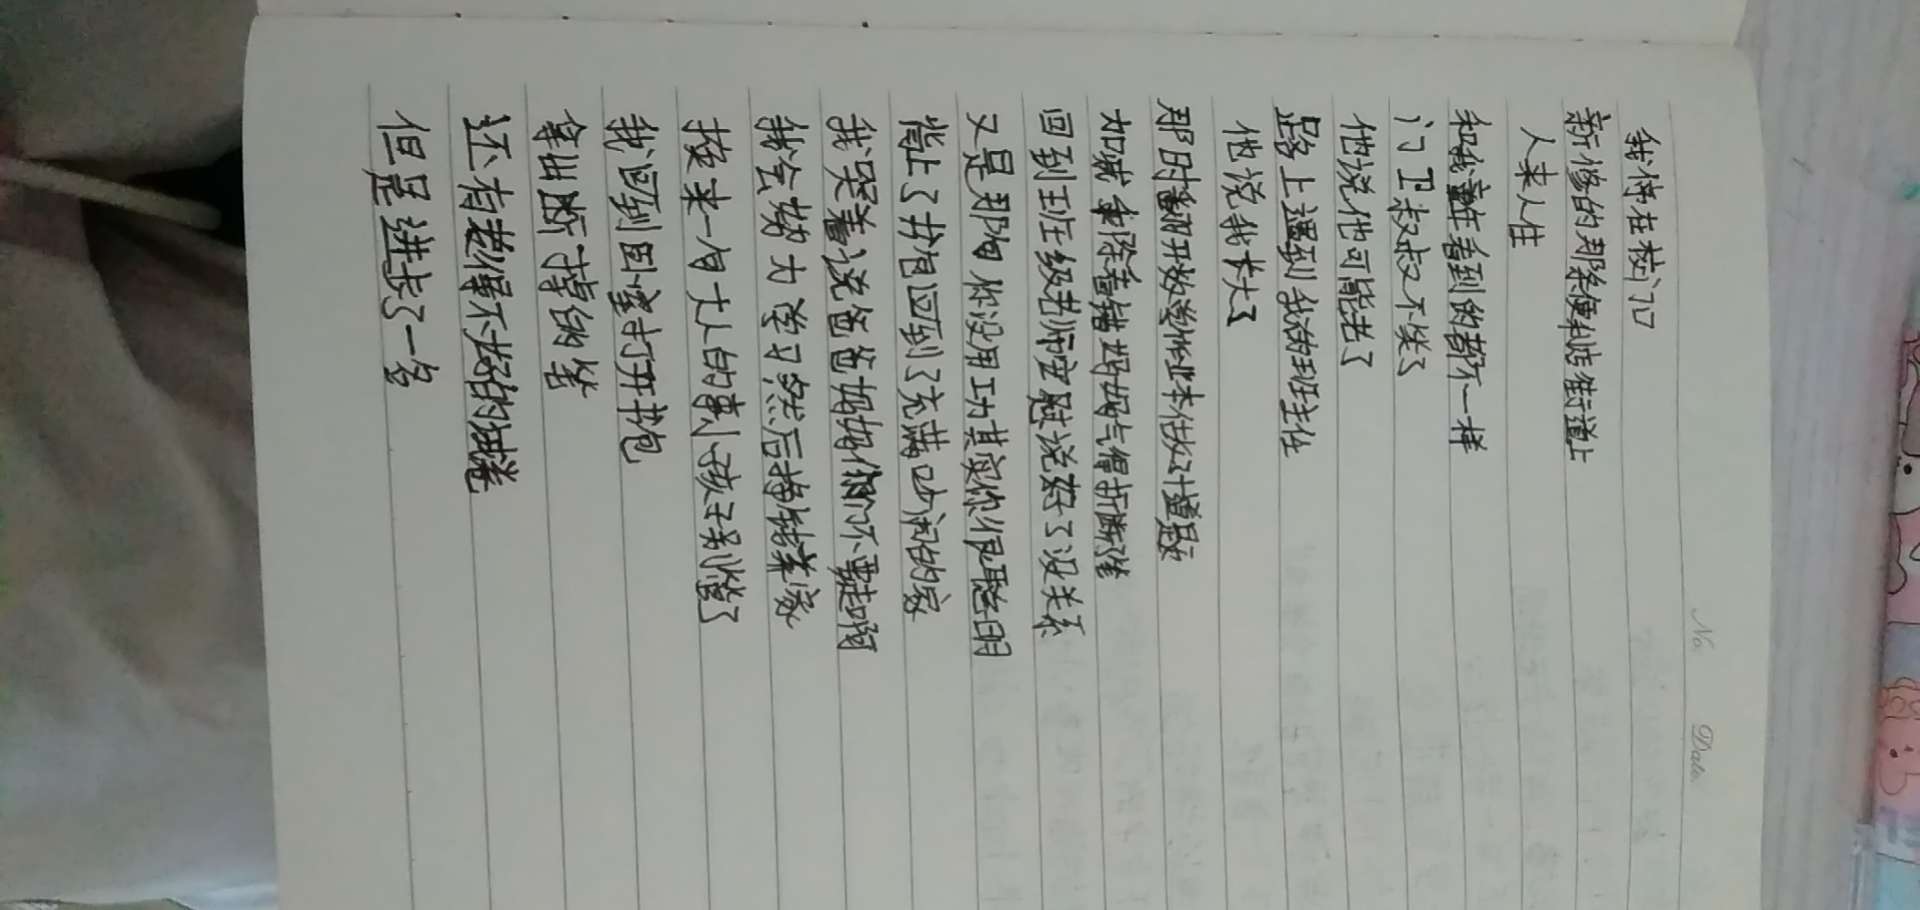 No.
Date
我停在校门口
新修的那条便利店街道上
人来人往
和我童年看到的都不一样
门卫叔叔不笑了
他说他可能老了
路上遇到我的班主任
他说我长大了
那时翻开数学作业本估分计题
加减乘除看错妈妈气得折断
回到班级老师安慰说好了没关系
又是那句你没用功其实你很聪明
背上了书包回到了充满吵闹的家
我哭着说爸爸妈妈你们不要吵啊
我会努力学习然后挣钱养家
换来一句大人的事小孩子别管了
我回到卧室打开书包
拿出断了的铅笔
还有考得不好的试卷
但是进步了一名